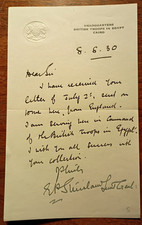 HEADQUARTERS
BRITISH TROOPS IN EGYPT
CAIRO
8. 6. 30
Dear Sir
I have received your
letter of July 21, sent on
some here, from England.
I am serving here in Command
of the British Troops in Egypt.
I wish you all success with
your collection.